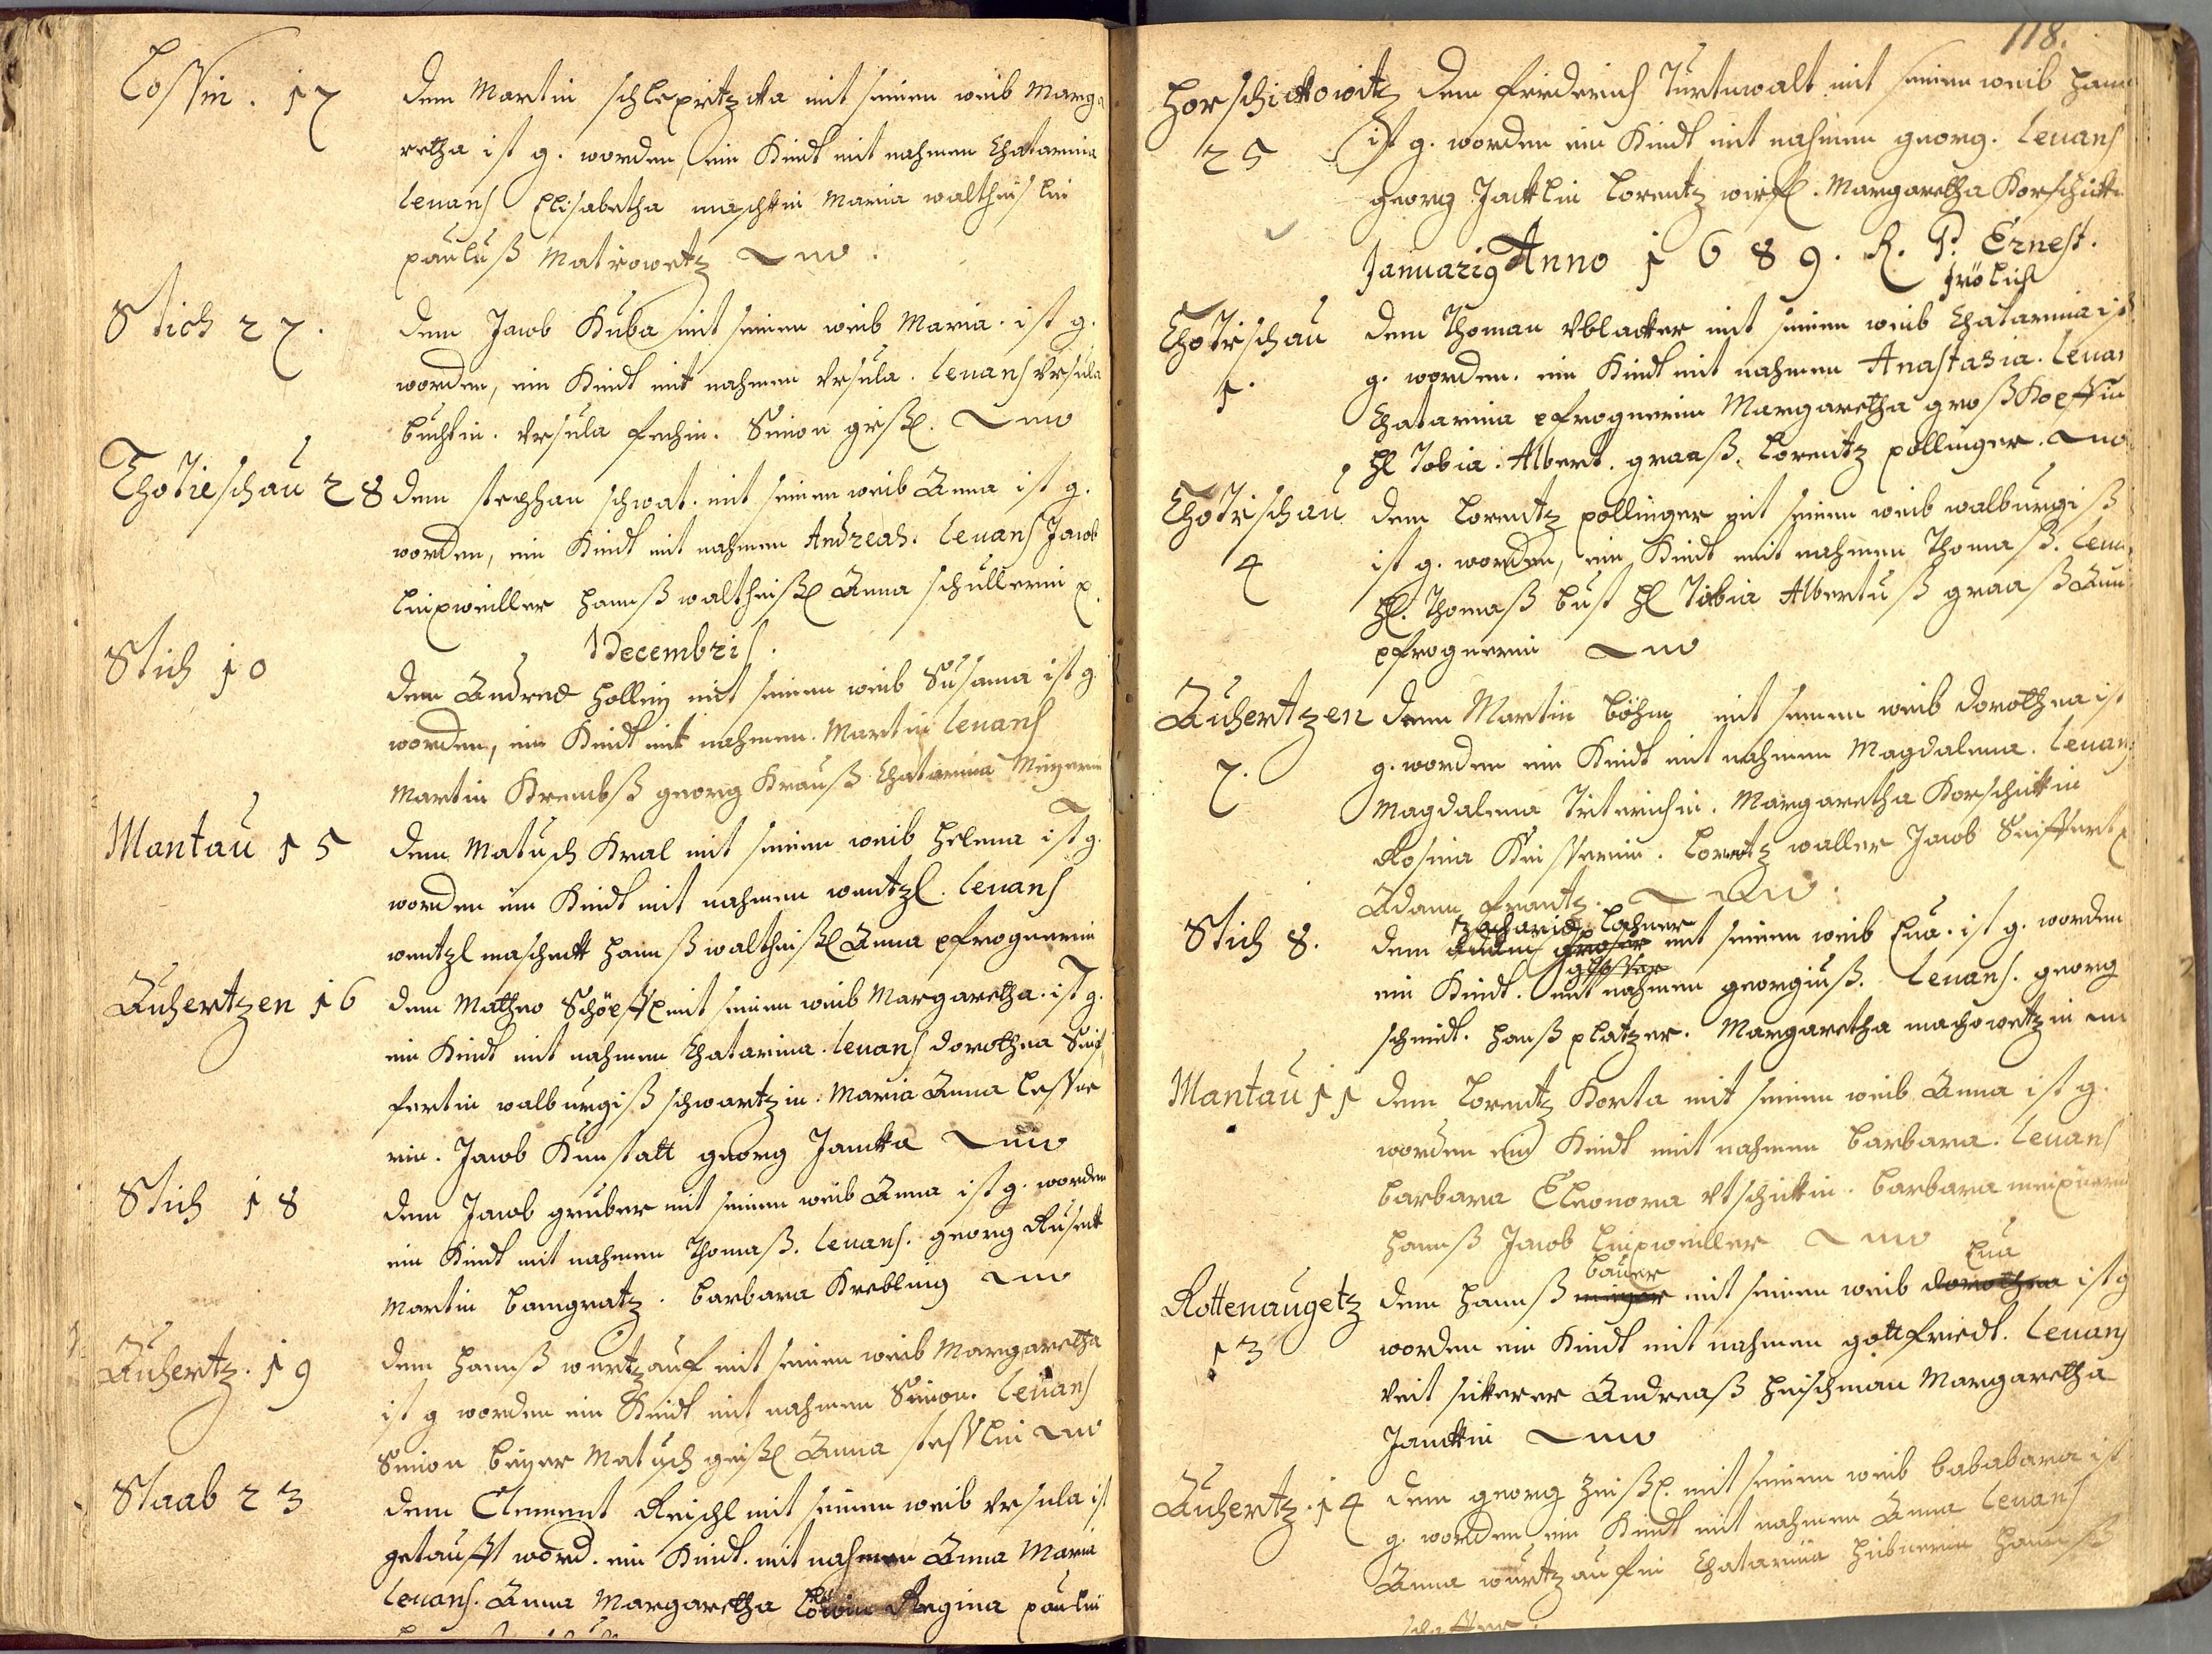 Lossin. 17 dem Martin schlepritzcka mit seinen weib Marga
retha ist g. worden, ein Kindt mit nahmen Chatarina
levans Elisabetha maschkin Maria waltheislin
pauluß Matzowetz
Stich 27. dem Jacob Kuba mit seinen weib Maria. ist g.
worden, ein Kindt mit nahmen Vrsula. levans Vrsula
buchtin. Vrsula fechin. Simon
Chotieschau 28 dem stephan schwat. mit seinen weib Anna ist g.
worden, ein Kindt mit nahmen Andreas. levans Jacob
Leixweiller hannß waltheißl Anna schullerin
Decembris.
Stich 10 dem Andreæ holling mit seinen weib Susanna ist g
worden, ein Kindt mit nahmen. Martin levans
Martin Krembß georg Krauß Chatarina
Mantau 15 dem Matusch Kral mit seinen weib Helena ist g.
worden ein Kindt mit nahmen wentzl. levans
wentzl mascheck hannß waltheißl Anna pfrognerin
Auhertzen 16 dem Matheo Schöpfl mit seinen weib Margaretha. ist g.
ein Kindt mit nahmen Chatarina. levans dorothea Seif
fertin walburgiß schwartzin. Maria Anna
rin. Jacob Kunstatt georg Jancka
Stich 18 dem Jacob gruber mit seinen weib Anna ist g. worden
ein Kindt mit nahmen Thomaß. levans. georg
Martin bamgratz. barbara Krebling
Auhertz. 19 dem hannß wurtzauf mit seinen weib Margaretha
ist g worden ein Kindt mit nahmen Simon. levans
Simon beyer Matusch geißl Anna
Staab 23 dem Clement Reischl mit seinen weib Vrsula ist
getaufft word. ein Kindt. mit nahmen Anna Maria
levans. Anna Margaretha Regina paulin
118.
Horschickowitz dem friderich Türtnwalt mit seinen weib
25 ist g. worden ein Kindt mit nahmen georg. levans
georg Jacklin Lorentz Margaretha
Januarig Anno 1689. R. P. Ernest.
frölich
Chotieschau dem Thoman Vblacker mit seinen weib Chatarina ist
1. g. worden. ein Kindt mit nahmen Anastasia. levan
Chatarina pfrognerin Margaretha großkopffin
Tobia. Albert. graaß. Lorentz pollinger.
Chotieschau dem Lorentz pollinger mit seinen weib walburgiß
4 ist g. worden, ein Kindt mit nahmen Thomaß.
Thomaß bust Tobia Albertuß graaß
pfrognerin
Auhertzen dem Martin böhm mit seinen weib dorothea ist
7. g. worden ein Kindt mit nahmen Magdalena. levans
Magdalena Margaretha Korschickin
Rosina Lorentz waller Jacob Seiffert
Adam frantz.
Stich 8. dem Zachariæ Lachner mit seinen weib Eua. ist g. worden
ein Kindt. mit nahmen georgiuß. levans. georg
schmidt. hanß platzer. Margaretha machowetzin
Mantau 11 dem Lorentz Korta mit seinen weib Anna ist g.
worden ein Kindt mit nahmen barbara. levans
barbara Eleonora barbara
hannß Jacob Leixweiller
bauer Eua
Rottenaugetz dem hannß mit seinen weib dorothea ist g
13 worden ein Kindt mit nahmen gottfriedt. levans
Veit Andreaß heischman Margaretha
Janckin
Auhertz. 14 dem georg mit seinen weib bababara ist
g. worden ein Kindt mit nahmen Anna levans
Anna wurtzaufin Chatarina hübnerin hannß